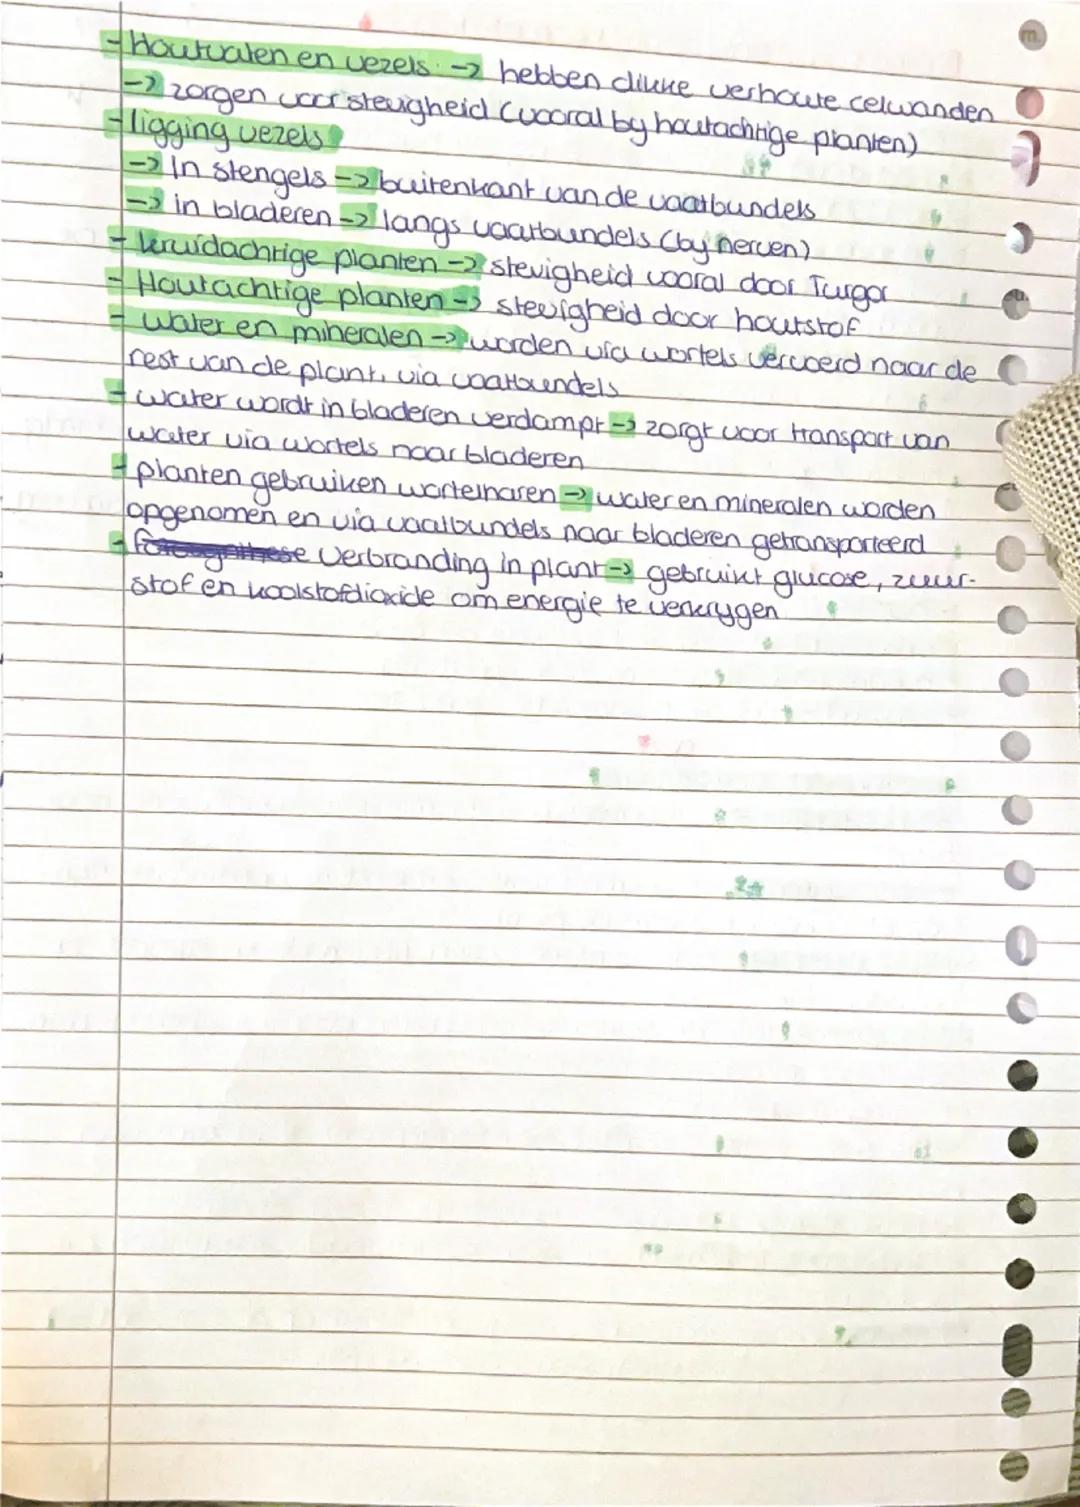 - Houtvaten en vezels -> hebben dikke verhoute celwanden
-> zorgen voor stevigheid (vooral by houtachtige planten)
- ligging vezels
-> In stengels -> buitenkant van de vaatbundels
-> in bladeren -> langs vaatbundels (by nerven)
- kruidachtige planten -> stevigheid vooral door Turgor
- Houtachtige planten -> stevigheid door houtstof
- water en mineralen -> worden via wortels vervoerd naar de
rest van de plant, via vaatbundels
- water wordt in bladeren verdampt -> zorgt voor transport van
water via wortels naar bladeren
- planten gebruiken wortelharen -> water en mineralen worden
opgenomen en via vaatbundels naar bladeren getransporteerd
- Verbranding in plant -> gebruikt glucose, zuur-
stof en koolstofdioxide om energie te verkrygen